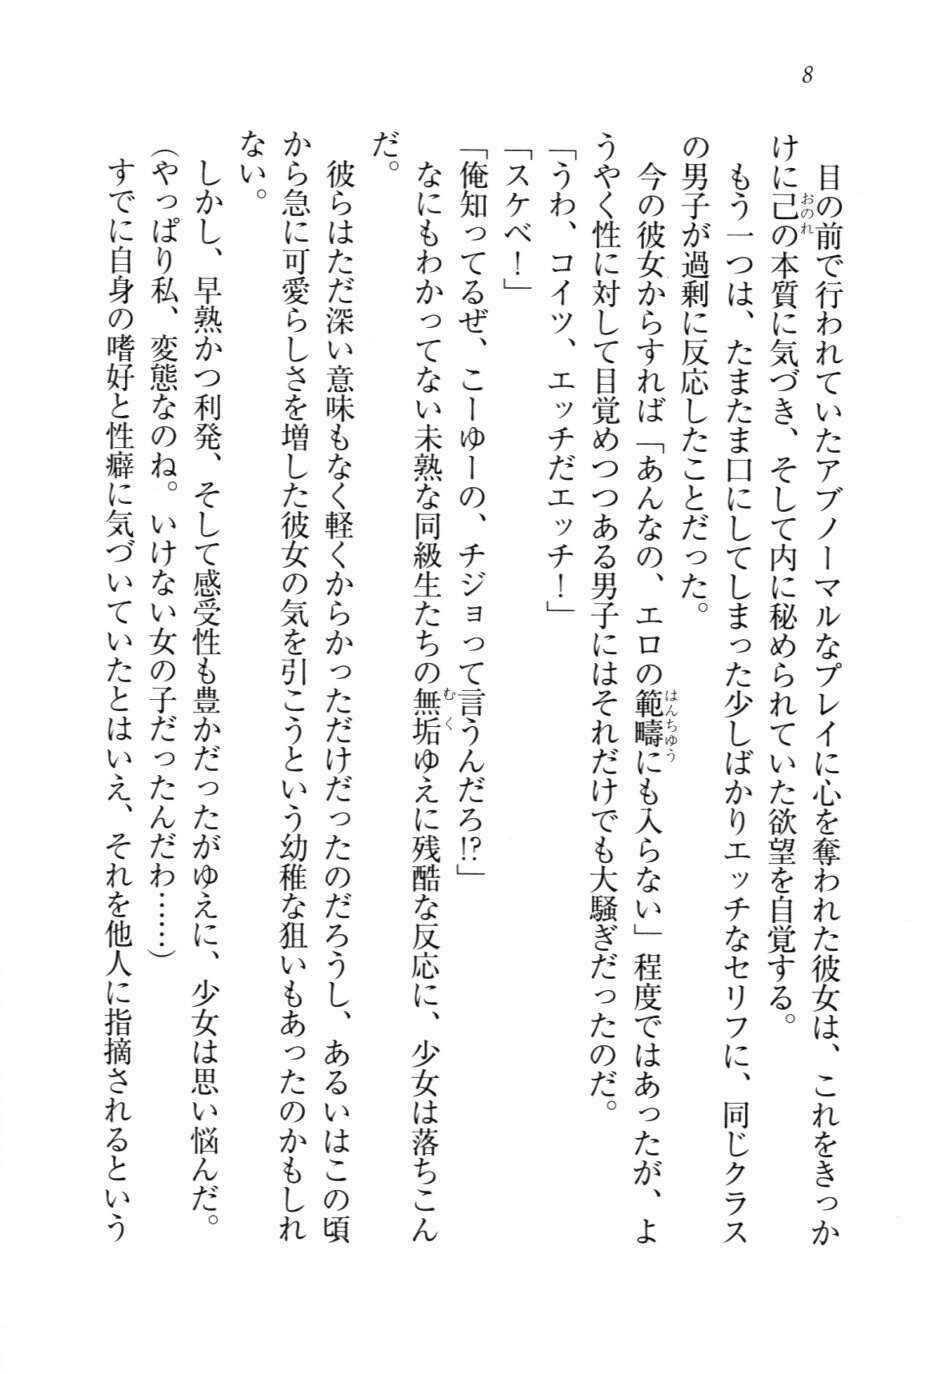 8
目の前で行われていたアブノーマルなプレイに心を奪われた彼女は、これをきっか
けに己の本質に気づき、そして内に秘められていた欲望を自覚する。
もう一つは、たまたま口にしてしまった少しばかりエッチなセリフに、同じクラス
の男子が過剰に反応したことだった。
今の彼女からすれば「あんなの、エロの範疇にも入らない」程度ではあったが、よ
うやく性に対して目覚めつつある男子にはそれだけでも大騒ぎだったのだ。
「うわ、コイツ、エッチだエッチ！」
「スケベ！」
「俺知ってるぜ、こーゆーの、チジョって言うんだろ!?」
なにもわかってない未熟な同級生たちの無垢ゆえに残酷な反応に、少女は落ちこん
だ。
彼らはただ深い意味もなく軽くからかっただけだったのだろうし、あるいはこの頃
から急に可愛らしさを増した彼女の気を引こうという幼稚な狙いもあったのかもしれ
ない。
しかし、早熟かつ利発、そして感受性も豊かだったがゆえに、少女は思い悩んだ。
（やっぱり私、変態なのね。いけない女の子だったんだわ……）
すでに自身の嗜好と性癖に気づいていたとはいえ、それを他人に指摘されるという